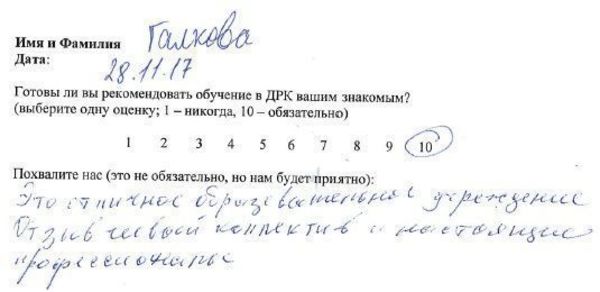 Имя и Фамилия Галкова
Дата: 28.11.17
Готовы ли вы рекомендовать обучение в ДРК вашим знакомым?
(выберите одну оценку; 1 – никогда, 10 – обязательно)
1 2 3 4 5 6 7 8 9 10
Похвалите нас (это не обязательно, но нам будет приятно):
Это отличное образовательное учреждение
Отзывчивый коллектив и настоящие
профессионалы